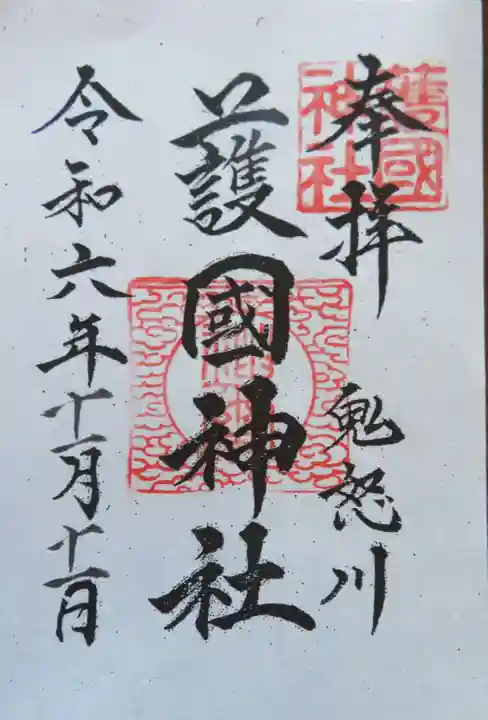 奉拝
鬼怒川
護國神社
令和六年十一月十一日
護國
神社